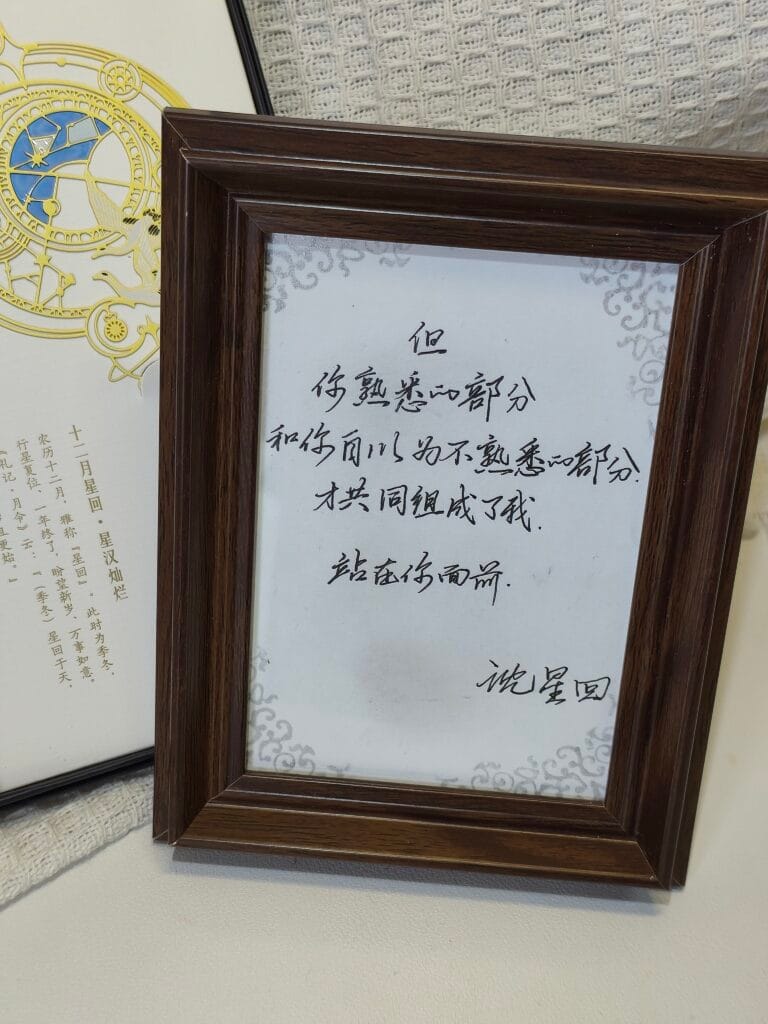 但
你熟悉的部分
和你自以为不熟悉的部分.
才共同组成了我.
站在你面前.
沈星回
十二月星回·星汉灿烂
农历十二月，雅称『星回』。此时为季冬，
行星复位，一年终了，盼望新岁，万事如意。
《礼记·月令》云：“（季冬）星回于天，
且更始。”